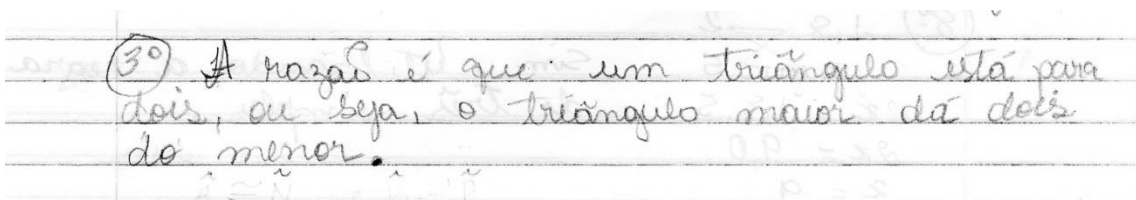 3º) A razão é que um triãngulo está para
dois, ou seja, o triãngulo maior dá dois
do menor.